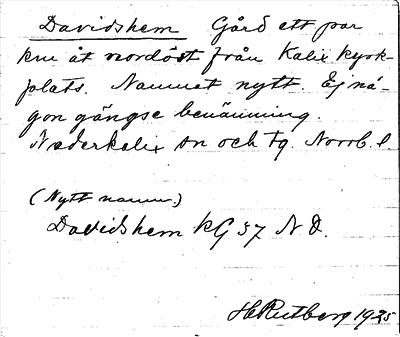 Davidshem Gård ett par
km åt nordöst från Kalix kyrk-
plats. Namnet nytt. Ej nå-
gon gängse benämning.
Nederkalix sn och tg. Norrb. l.
(Nytt namn.)
Davidshem kG 37 N. D.
H Rutberg 1935